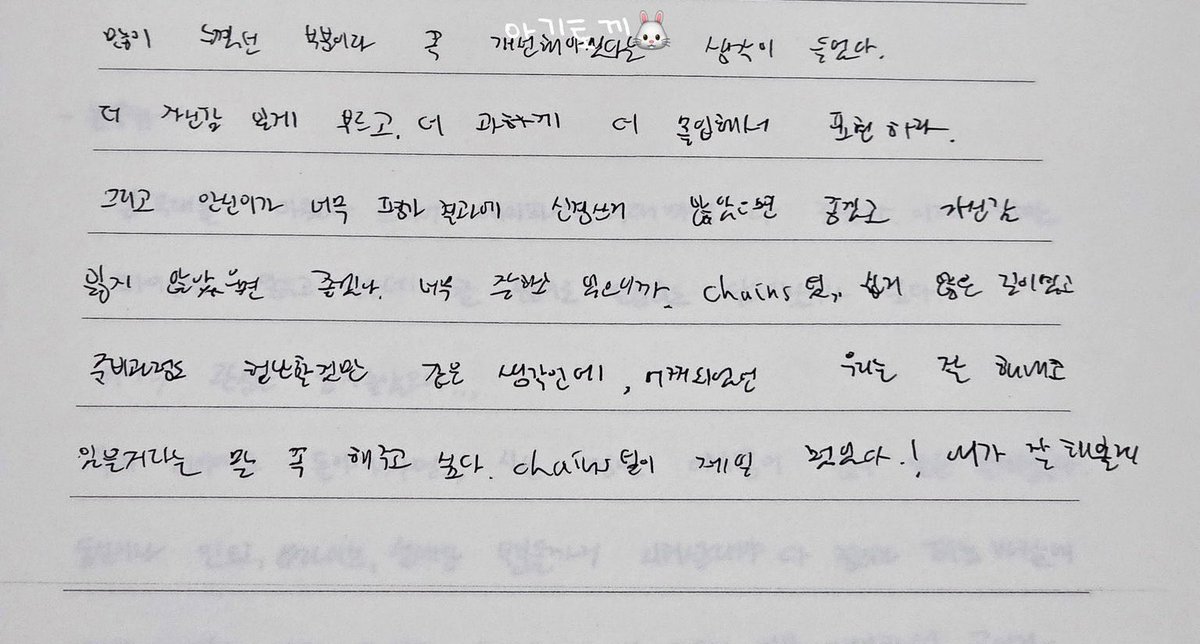 아기토끼
많이 느꼈던 부분이라 꼭 개선해야겠다는 생각이 들었다.
더 자신감 있게 부르고, 더 과하게 더 몰입해서 표현하라.
그리고 안신이가 너무 평가 결과에 신경쓰지 않았으면 좋겠고 자신감
잃지 않았으면 좋겠다. 너무 잘하고 있으니까. chains 팀.. 쉽지 않은 길이었고
준비과정도 험난할 것만 같은 생각인데, 어찌되었던 우리는 잘 해내고
있을거라는 말 꼭 해주고 싶다. chains 팀이 제일 멋있다! 내가 잘 해볼게